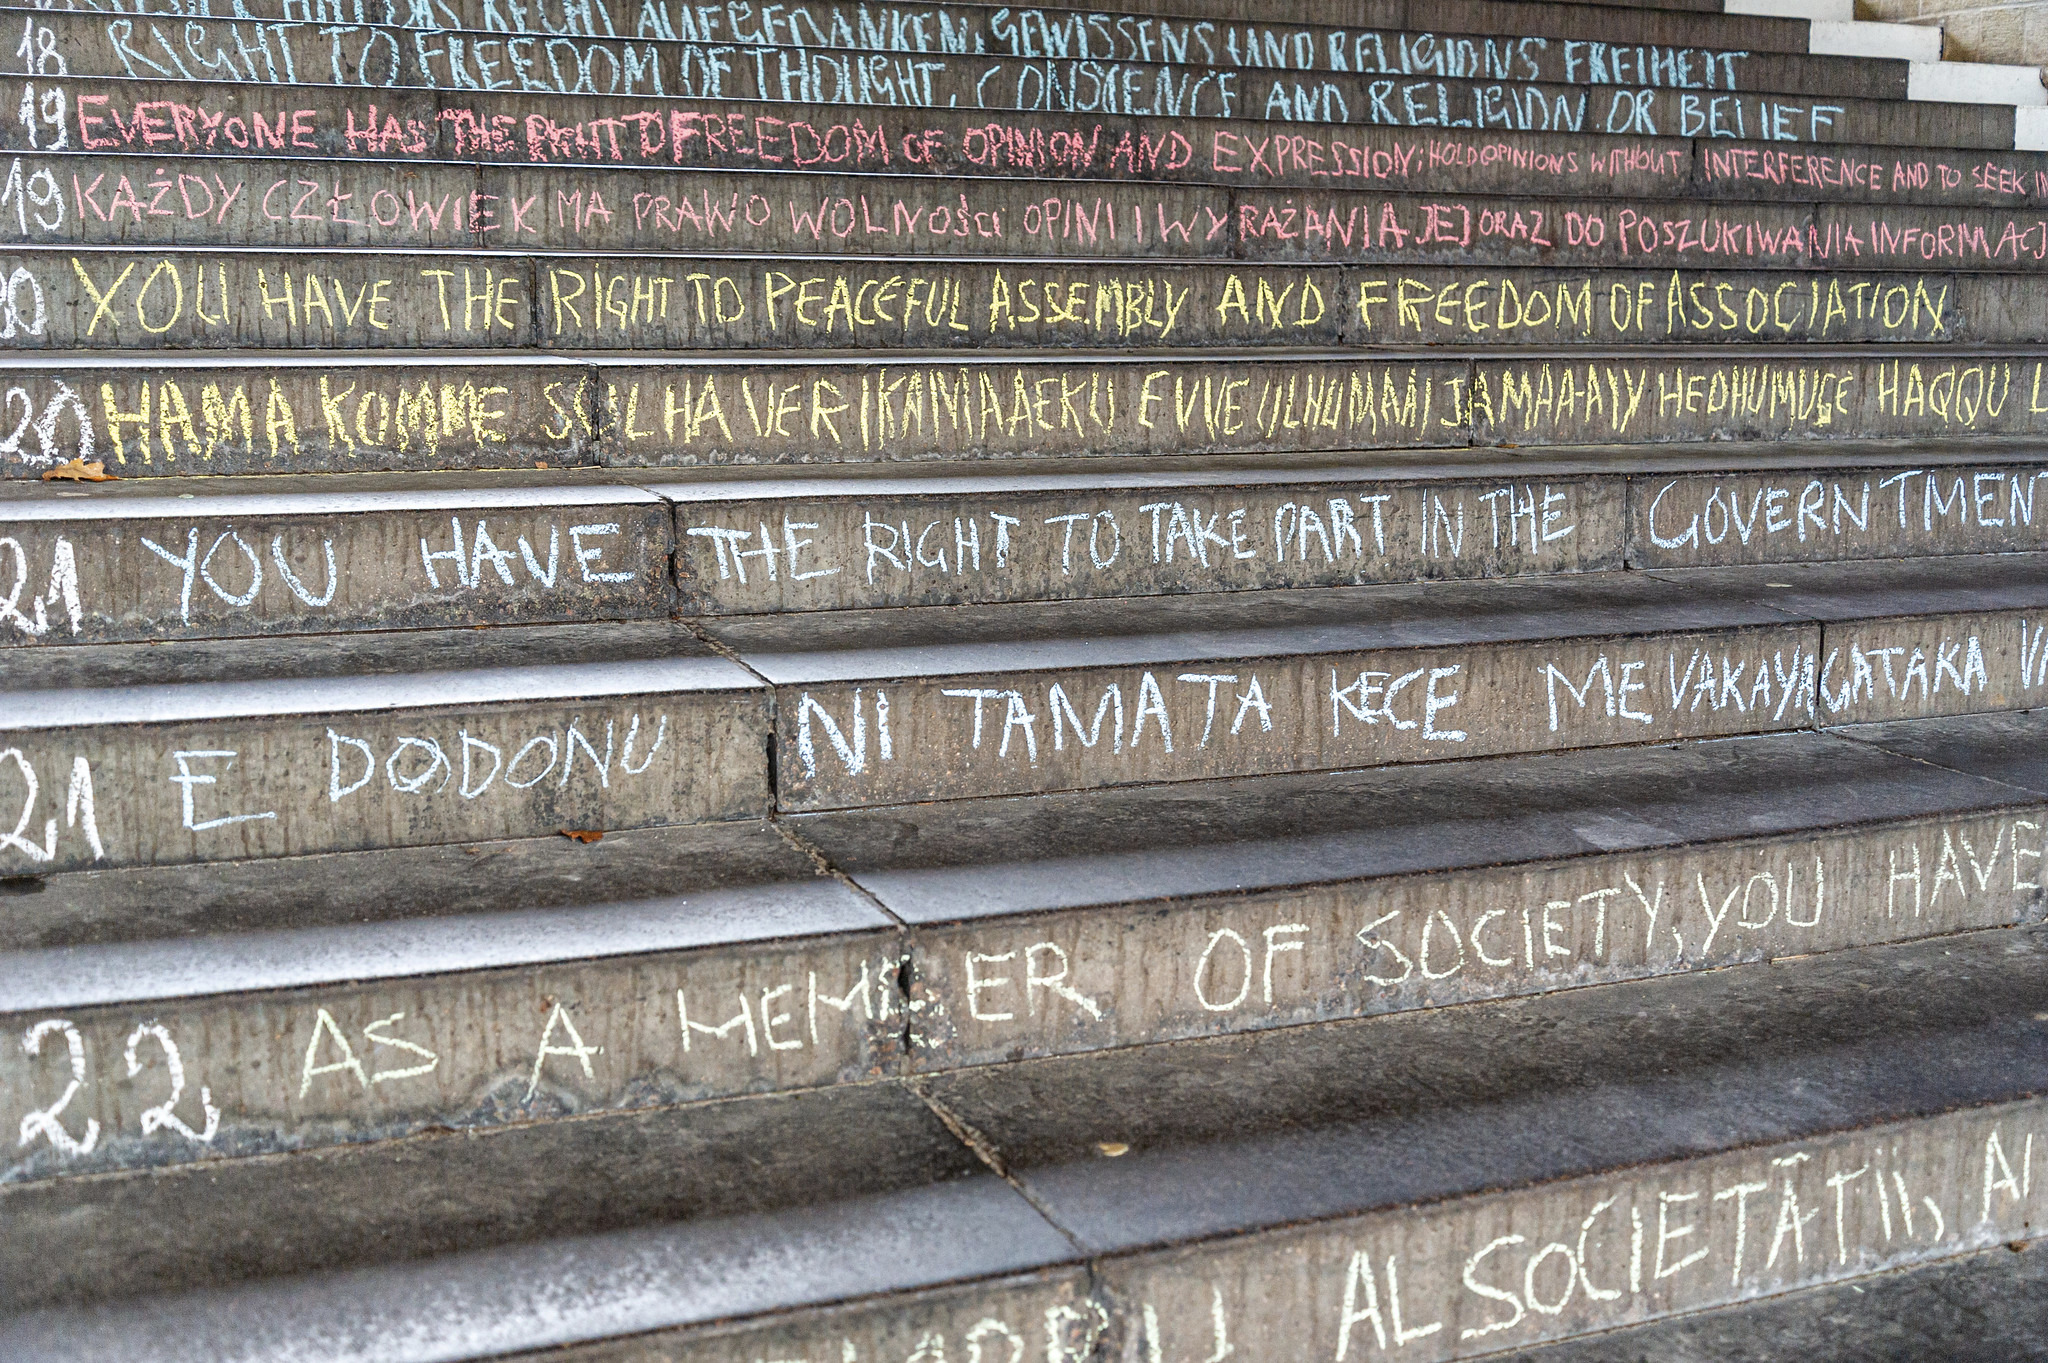 HAT DAS RECHT AUF GEDANKEN, GEWISSENS UND RELIGIONS FREIHEIT
18 RIGHT TO FREEDOM OF THOUGHT, CONSCIENCE AND RELIGION OR BELIEF
19 EVERYONE HAS THE RIGHT TO FREEDOM OF OPINION AND EXPRESSION; HOLD OPINIONS WITHOUT INTERFERENCE AND TO SEEK IN
19 KAŻDY CZŁOWIEK MA PRAWO WOLNOŚCI OPINII I WYRAŻANIA JEJ ORAZ DO POSZUKIWANIA INFORMACJ
20 YOU HAVE THE RIGHT TO PEACEFUL ASSEMBLY AND FREEDOM OF ASSOCIATION
20 HAMA KOMME SULHAVERIKAMAAEKU EVVE ULHUMAAI JAMAA-AIY HEDHUMUGE HAQQU L
21 YOU HAVE THE RIGHT TO TAKE PART IN THE GOVERNTMENT
21 E DODONU NI TAMATA KECE ME VAKAYAGATAKA VA
22 AS A MEMBER OF SOCIETY, YOU HAVE
AL SOCIETĂTII, AI